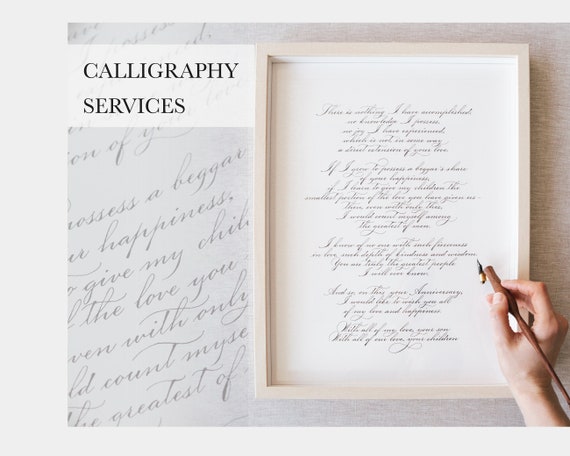 CALLIGRAPHY
SERVICES
There is nothing I have accomplished,
no knowledge I possess,
no joy I have experienced,
which is not in some way
a direct extension of your love.
If I grow to possess a beggar's share
of your happiness,
if I learn to give my children the
smallest portion of the love you have given us -
then even with only this,
I would count myself among
the greatest of men.
I know of no one with such fierceness
in love, such depth of kindness and wisdom.
You are truly the greatest people
I will ever know.
And so, on this, your Anniversary,
I would like to wish you all
of my love and happiness.
With all of my love, your son
With all of our love, your children
of your love
possess a beggar
happiness,
give my chil
the love you
even with only
ld count myse
the greatest of